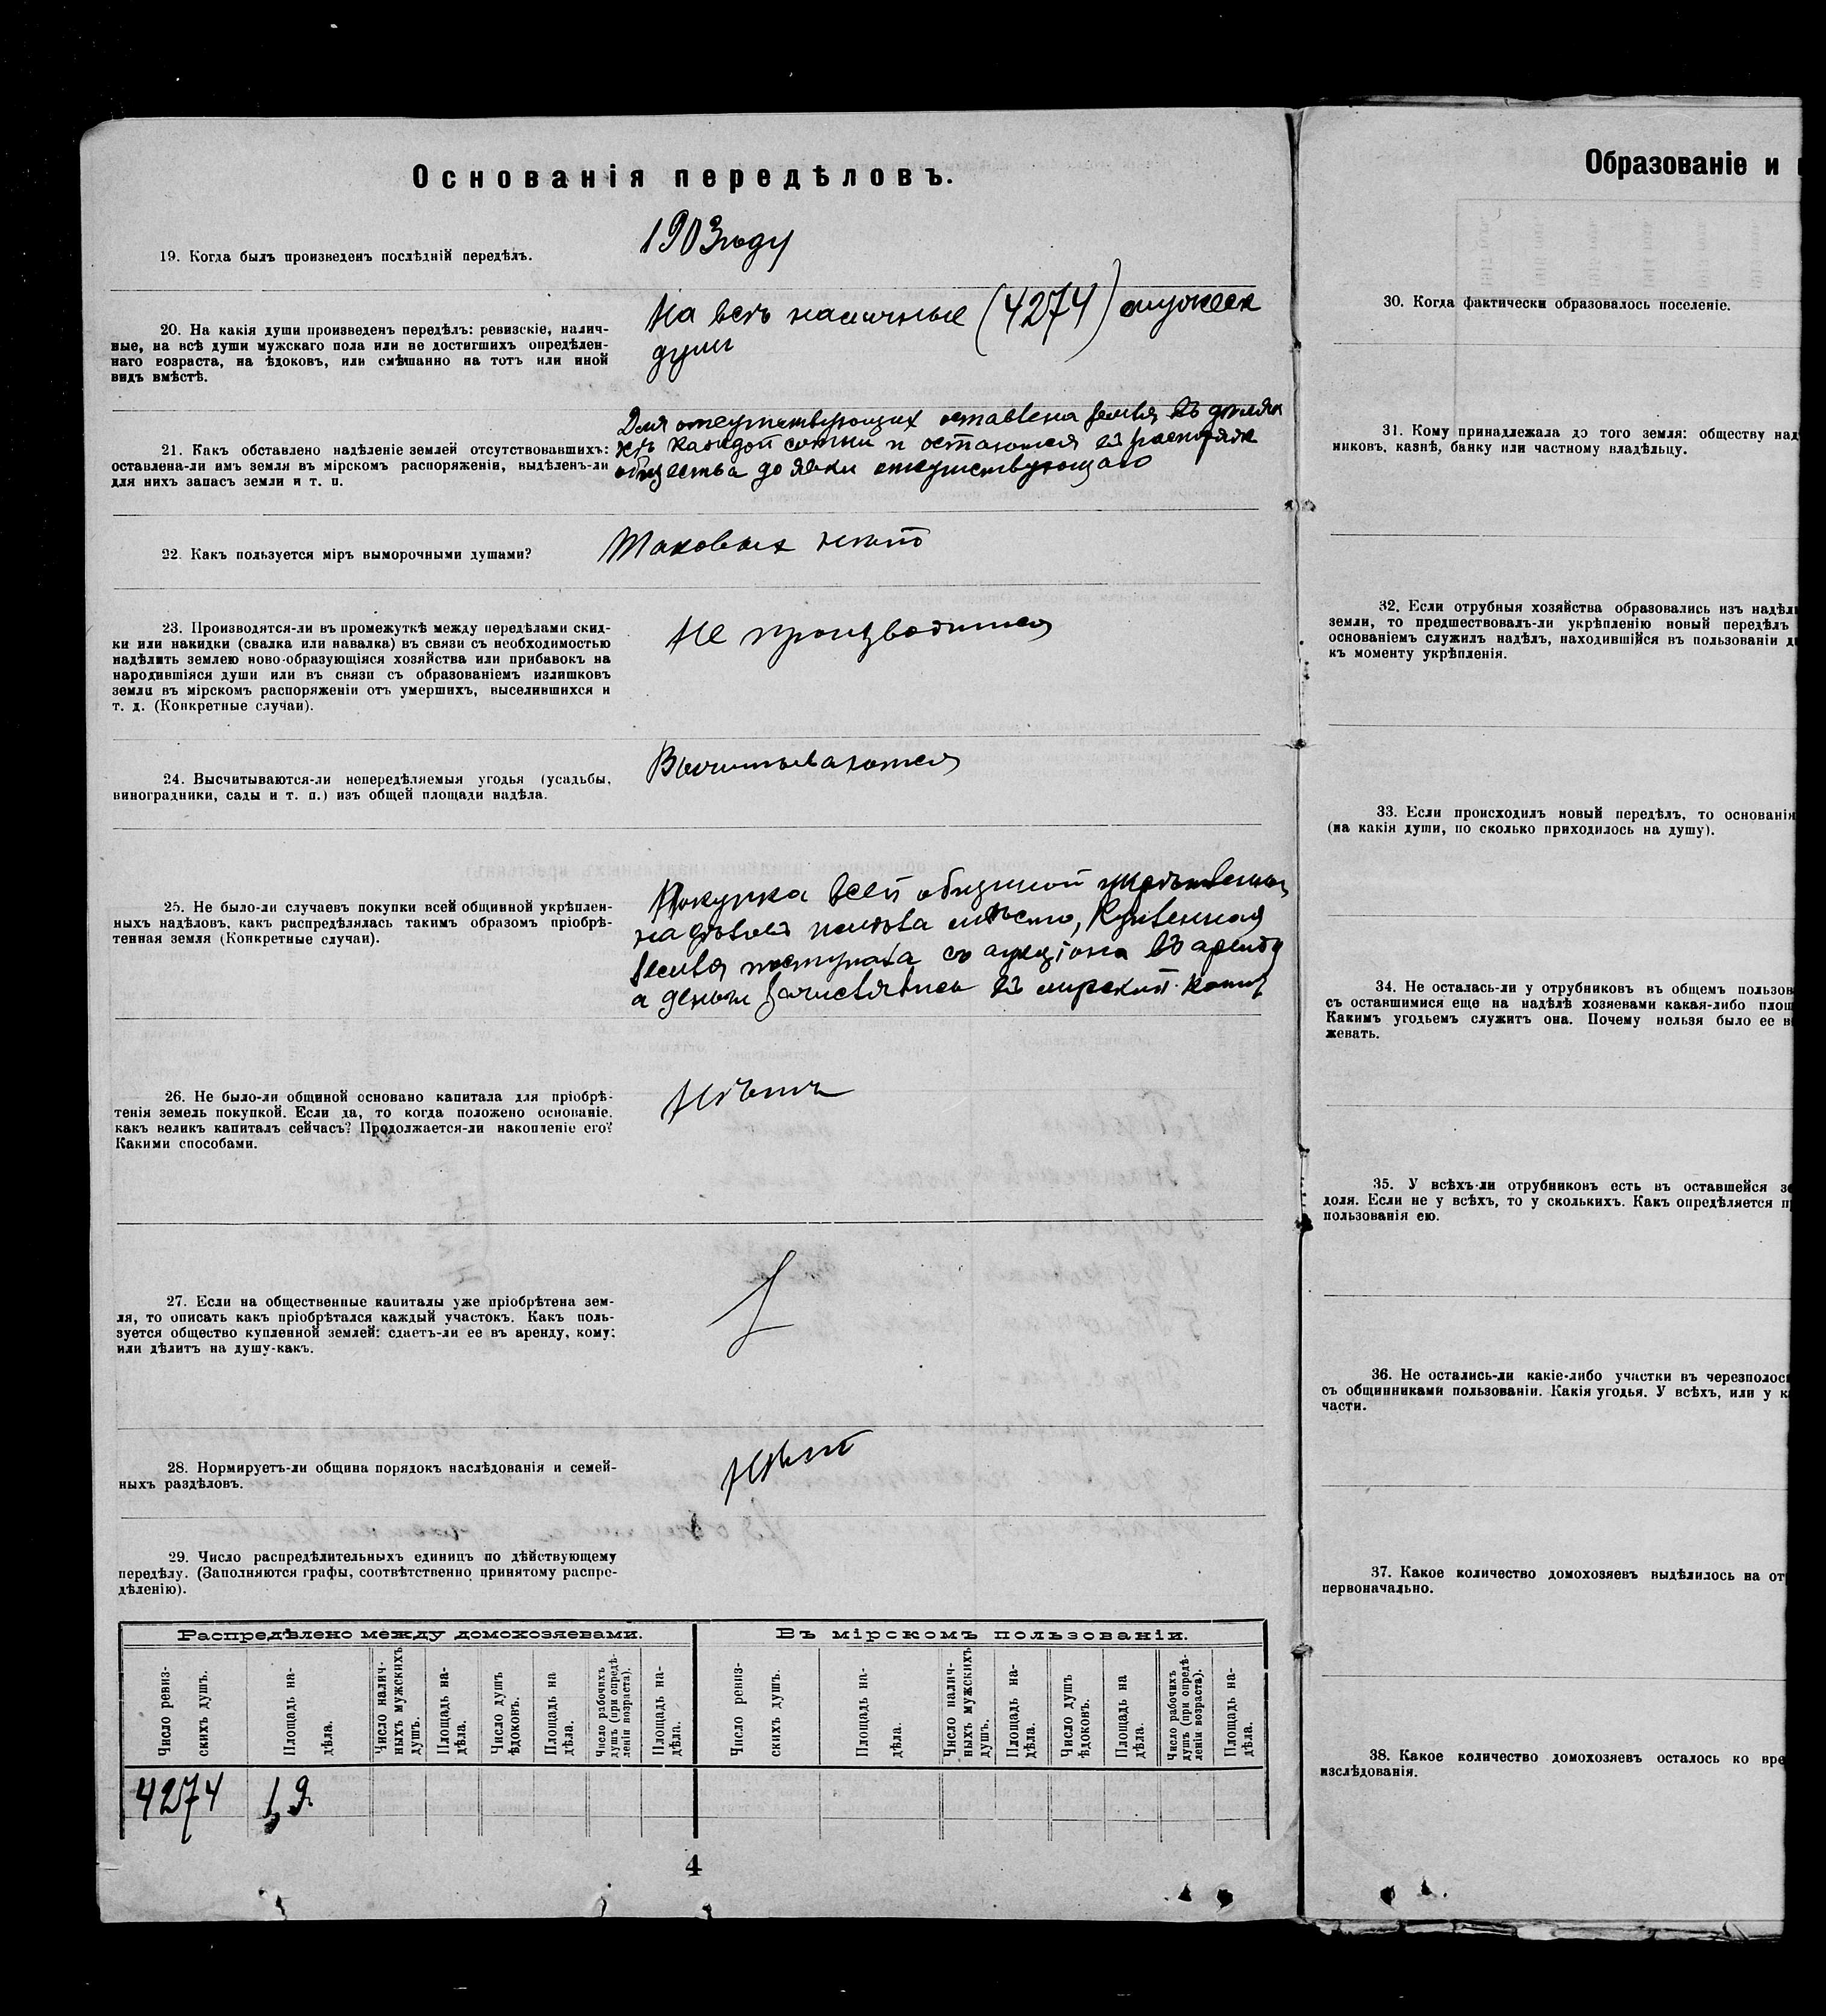 Основанія передѣловъ.
19. Когда былъ произведенъ послѣдній передѣлъ.
1903 году
20. На какія души произведенъ передѣлъ: ревизскіе, налич-
ные, на всѣ души мужскаго пола или не достигшихъ опредѣлен-
наго возраста, на ѣдоковъ, или смѣшанно на тотъ или иной
видъ вмѣстѣ.
На всѣ наличные (4274) мужеск
души
21. Какъ обставлено надѣленіе землей отсутствовавшихъ:
оставлена-ли имъ земля въ мірскомъ распоряженіи, выдѣленъ-ли
для нихъ запасъ земли и т. п.
Для отсутствующих оставлена земля въ
каждой сотни и остаются въ распоряж
общества до явки отсутствующаго
22. Какъ пользуется міръ выморочными душами?
Таковых нѣтъ
23. Производятся-ли въ промежуткѣ между передѣлами скид-
ки или накидки (свалка или навалка) въ связи съ необходимостью
надѣлить землею ново-образующіяся хозяйства или прибавокъ на
народившіяся души или въ связи съ образованіемъ излишковъ
земли въ мірскомъ распоряженіи отъ умершихъ, выселившихся и
т. д. (Конкретные случаи).
Не производится
24. Высчитываются-ли непередѣляемыя угодья (усадьбы,
виноградники, сады и т. п.) изъ общей площади надѣла.
Высчитываются
25. Не было-ли случаевъ покупки всей общинной укрѣплен-
ныхъ надѣловъ, какъ распредѣлялась такимъ образомъ пріобрѣ-
тенная земля (Конкретные случаи).
Покупка всей общиной укрѣпленны
надѣловъ имѣла мѣсто, Купленная
земля поступала съ аукціона въ аренду
а деньги зачислялись въ мирской капит
26. Не было-ли общиной основано капитала для пріобрѣ-
тенія земель покупкой. Если да, то когда положено основаніе,
какъ великъ капиталъ сейчасъ? Продолжается-ли накопленіе его?
Какими способами.
Нѣтъ
27. Если на общественные капиталы уже пріобрѣтена зем-
ля, то описать какъ пріобрѣтался каждый участокъ. Какъ поль-
зуется общество купленной землей: сдаетъ-ли ее въ аренду, кому:
или дѣлитъ на душу-какъ.
28. Нормируетъ-ли община порядокъ наслѣдованія и семей-
ныхъ раздѣловъ.
Нѣтъ
29. Число распредѣлительныхъ единицъ по дѣйствующему
передѣлу. (Заполняются графы, соотвѣтственно принятому распре-
дѣленію).
Распредѣлено между домохозяевами.
Въ мірскомъ пользованіи.
Число ревиз-
скихъ душъ.
Площадь на-
дѣла.
Число налич-
ныхъ мужскихъ
душъ.
Площадь на-
дѣла.
Число душъ
ѣдоковъ.
Площадь на
дѣла.
Число рабочихъ
душъ (при опредѣ-
леніи возраста).
Площадь на-
дѣла.
Число ревиз-
скихъ душъ.
Площадь на-
дѣла.
Число налич-
ныхъ мужскихъ
душъ.
Площадь на-
дѣла.
Число душъ
ѣдоковъ.
Площадь на
дѣла.
Число рабочихъ
душъ (при опредѣ-
леніи возраста).
Площадь на-
дѣла.
4274 1,9
4
Образованіе и
30. Когда фактически образовалось поселеніе.
31. Кому принадлежала до того земля: обществу над
никовъ, казнѣ, банку или частному владѣльцу.
32. Если отрубныя хозяйства образовались изъ надѣл
земли, то предшествовалъ-ли укрѣпленію новый передѣлъ
основаніемъ служилъ надѣлъ, находившійся въ пользованіи д
къ моменту укрѣпленія.
33. Если происходилъ новый передѣлъ, то основанія
(на какія души, по сколько приходилось на душу).
34. Не осталась-ли у отрубниковъ въ общемъ пользов
съ оставшимися еще на надѣлѣ хозяевами какая-либо площ
Какимъ угодьемъ служитъ она. Почему нельзя было ее в
жевать.
35. У всѣхъ-ли отрубниковъ есть въ оставшейся зе
доля. Если не у всѣхъ, то у сколькихъ. Какъ опредѣляется п
пользованія ею.
36. Не остались-ли какіе-либо участки въ черезполос
съ общинниками пользованіи. Какія угодья. У всѣхъ, или у к
части.
37. Какое количество домохозяевъ выдѣлилось на от
первоначально.
38. Какое количество домохозяевъ осталось ко вре
изслѣдованія.